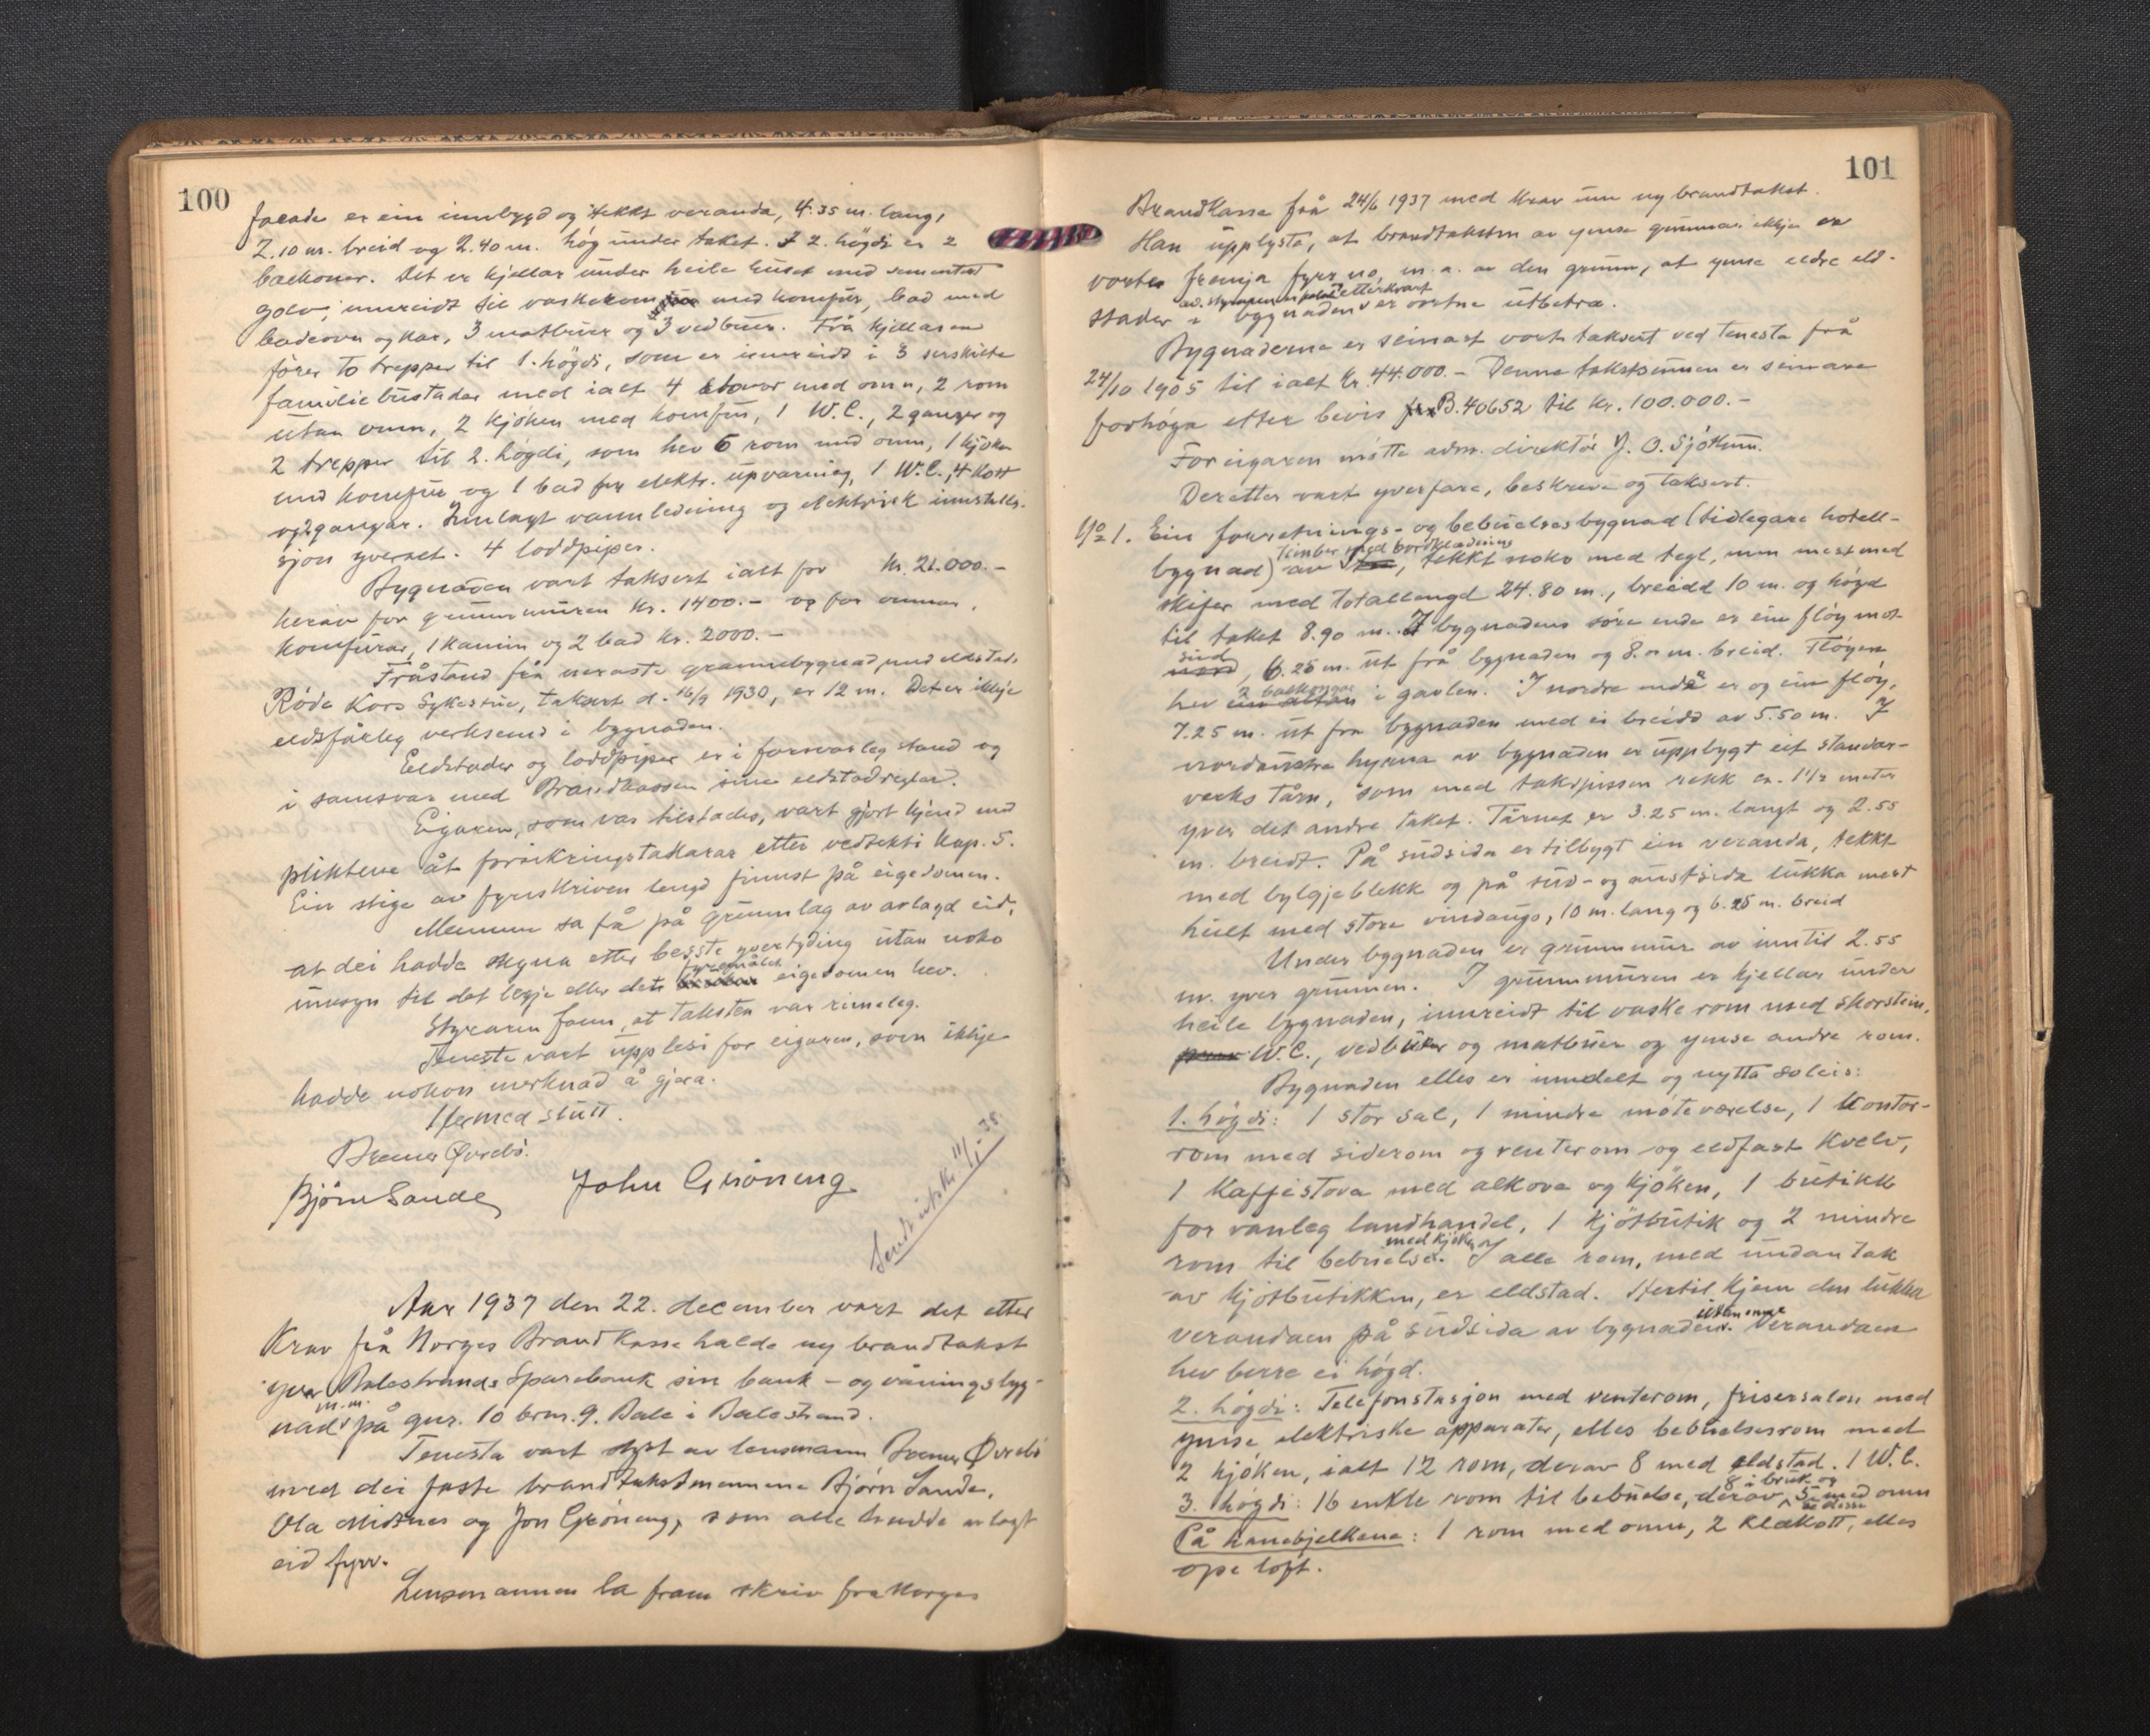 100
facade er ein innbygd og tekkt veranda, 4.35 m. lang,
2.10 m. breid og 2.40 m. høg under taket. I 2. høgdi er 2
balkonar. Det er kjellar under heile huset med sementert
golv, innreidt til vaskerom med komfur, bad med
badeovn og kar, 3 matbuer og 3 vedbuer. Frå kjellaren
fører to trepper til 1. høgdi, som er innreidd i 3 serskilte
familiebustader med ialt 4 stovor med omn, 2 rom
utan omn, 2 kjøken med komfur, 1 W.C., 2 ganger og
2 trepper til 2. høgdi, som hev 6 rom med omn, 1 kjøken
med komfur og 1 bad for elektr. upvarming, 1 W.C., 4 kott
og 2 gangar. Innlagt vannledning og elektrisk innstalla-
sjon yveralt. 4 loddpiper.
Bygnaden vart taksert ialt for kr. 21.000.-
herav for grunnmuren kr. 1400.- og for omnar,
komfurar, 1 kamin og 2 bad kr. 2000.-
Fråstand frå næraste grannebygnad med eldstad,
Røde Kors Sykestue, taksert d. 16/9 1930, er 12 m. Det er ikkje
eldsfårleg verksemd i bygnaden.
Eldstader og loddpiper er i forsvarleg stand og
i samsvar med Brandkassen sine eldstadreglar.
Eigaren, som var tilstades, vart gjort kjend med
pliktene åt forsikringstakarar etter vedtekti kap. 5.
Ein stige av fyreskriven lengd finnst på eigedomen.
Mennene sa frå på grunnlag av avlagd eid,
at dei hadde skyna etter besste yvertyding utan noko
umsyn til det legje eller den fyremålet eigedomen hev.
Styraren fann, at taksten var rimeleg.
Tenesta vart upplesi for eigaren, som ikkje
hadde nokon merknad å gjera.
Hermed slutt.
Bremer Øvrebø.
Bjørn Sande John Grøneng
Sendt utskr. 11/1-38
Aar 1937 den 22. december vart det etter
Krav frå Norges Brandkasse halde ny brandtakst
yver Balestrands Sparebank sin bank- og våningsbyg-
nad m.m. på gnr. 10 brnr. 9. Bale i Balestrand.
Tenesta vart styrt av lensmann Bremer Øvrebø
med dei faste brandtakstmennene Bjørn Sande,
Ola Midtnes og Jon Grøneng, som alle hadde avlagt
eid fyrr.
Lensmannen la fram skriv fra Norges
101
Brandkasse frå 24/6 1937 med krav um ny brandtakst.
Han upplyste, at brandtaksten av ymse grunnar ikkje er
vorte fremja fyrr no, m.a. av den grunn, at ymse eldre eld-
stader i bygnaden etterkvart er vortne utbetra.
Bygnaderne er seinast vort taksert ved tenesta frå
24/10 1905 til ialt kr. 44.000.- Denne takstsummen er seinare
forhøga etter bevis B. 40652 til kr. 100.000.-
For eigaren møtte adm. direktør J. O. Sjøtun.
Deretter vart yverfare, beskreve og taksert.
No 1. Ein forretnings- og bebuelsesbygnad (tidlegare hotell-
bygnad) av timber med bordklædning, tekkt noko med tegl, men mest med
skifer med totallengd 24.80 m., breidd 10 m. og høgd
til taket 8.90 m. I bygnadens søre ende er ein fløy mot
sud, 6.25 m. ut frå bygnaden og 8.0 m. breid. Fløyen
hev 2 balkongar i gavlen. I nordre ende er og ein fløy,
7.25 m. ut fra bygnaden med ei breidd av 5.50 m. I
nordaustre hyrna av bygnaden er uppbygt eit standar-
verks tårn, som med takspissen rekk ca. 1 1/2 meter
yver det andre taket. Tårnet er 3.25 m. langt og 2.55
m. breidt. På sudsida er tilbygt ein veranda, tekkt
med bylgjeblekk og på sud- og austsida lukka mest
heilt med store vindaugo, 10 m. lang og 6.25 m. breid
Under bygnaden er grunnmur av inntil 2.55
m. yver grunnen. I grunnmuren er kjellar under
heile bygnaden, innreidt til vaskerom med skorstein,
W.C., vedbuer og matbuer og ymse andre rom.
Bygnaden elles er inndelt og nytta soleis:
1. høgdi: 1 stor sal, 1 mindre møteværelse, 1 kontor-
rom med siderom og venterom og eldfast kvelv,
1 kaffistova med alkove og kjøken, 1 butikk
for vanleg landhandel, 1 kjøtbutik og 2 mindre
rom til bebuelse med kjøken. I alle rom, med undantak
av kjøtbutikken, er eldstad. Hertil kjem den lukka
verandaen på sudsida av bygnaden utan omn. Verandaen
hev berre ei høgd.
2. høgdi: Telefonstasjon med venterom, frisersalon med
ymse elektriske apparater, elles bebuelsesrom med
2 kjøken, ialt 12 rom, derav 8 med eldstad. 1 W.C.
3. høgdi: 16 enkle rom til bebuelse, derav 8 i bruk og 5 av desse med omn
På hanebjelkene: 1 rom med omn, 2 klækott, elles
ope loft.